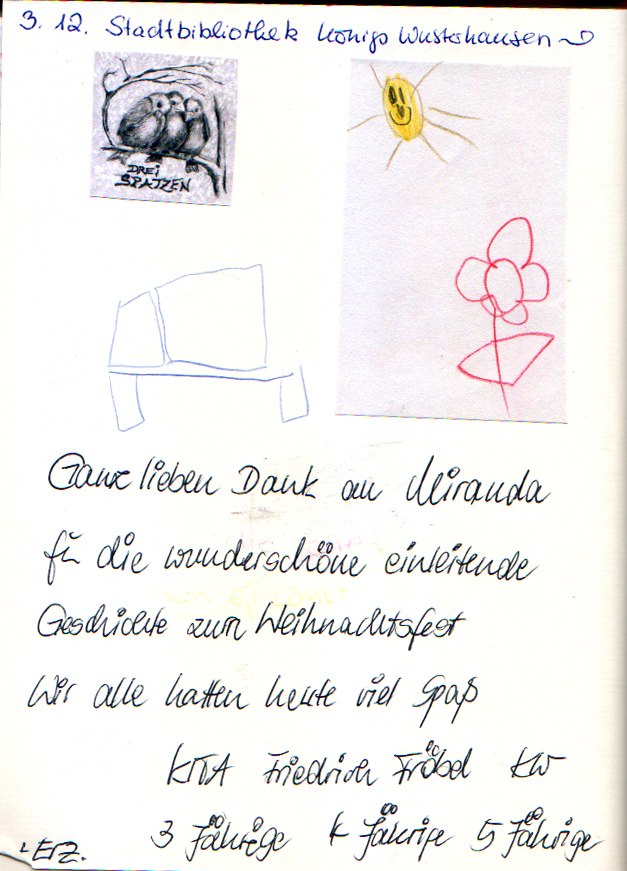 3. 12. Stadtbibliothek Königs Wusterhausen
DREI
SPATZEN
Ganz lieben Dank an Miranda
für die wunderschöne einleitende
Geschichte zum Weihnachtsfest
Wir alle hatten heute viel Spaß
KITA Friedrich Fröbel KW
3 Jährige 4 Jährige 5 Jährige
Erz.